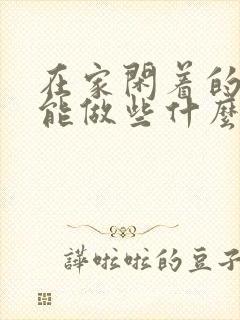 在家閑着的
能做些什麽
譁啦啦的豆子